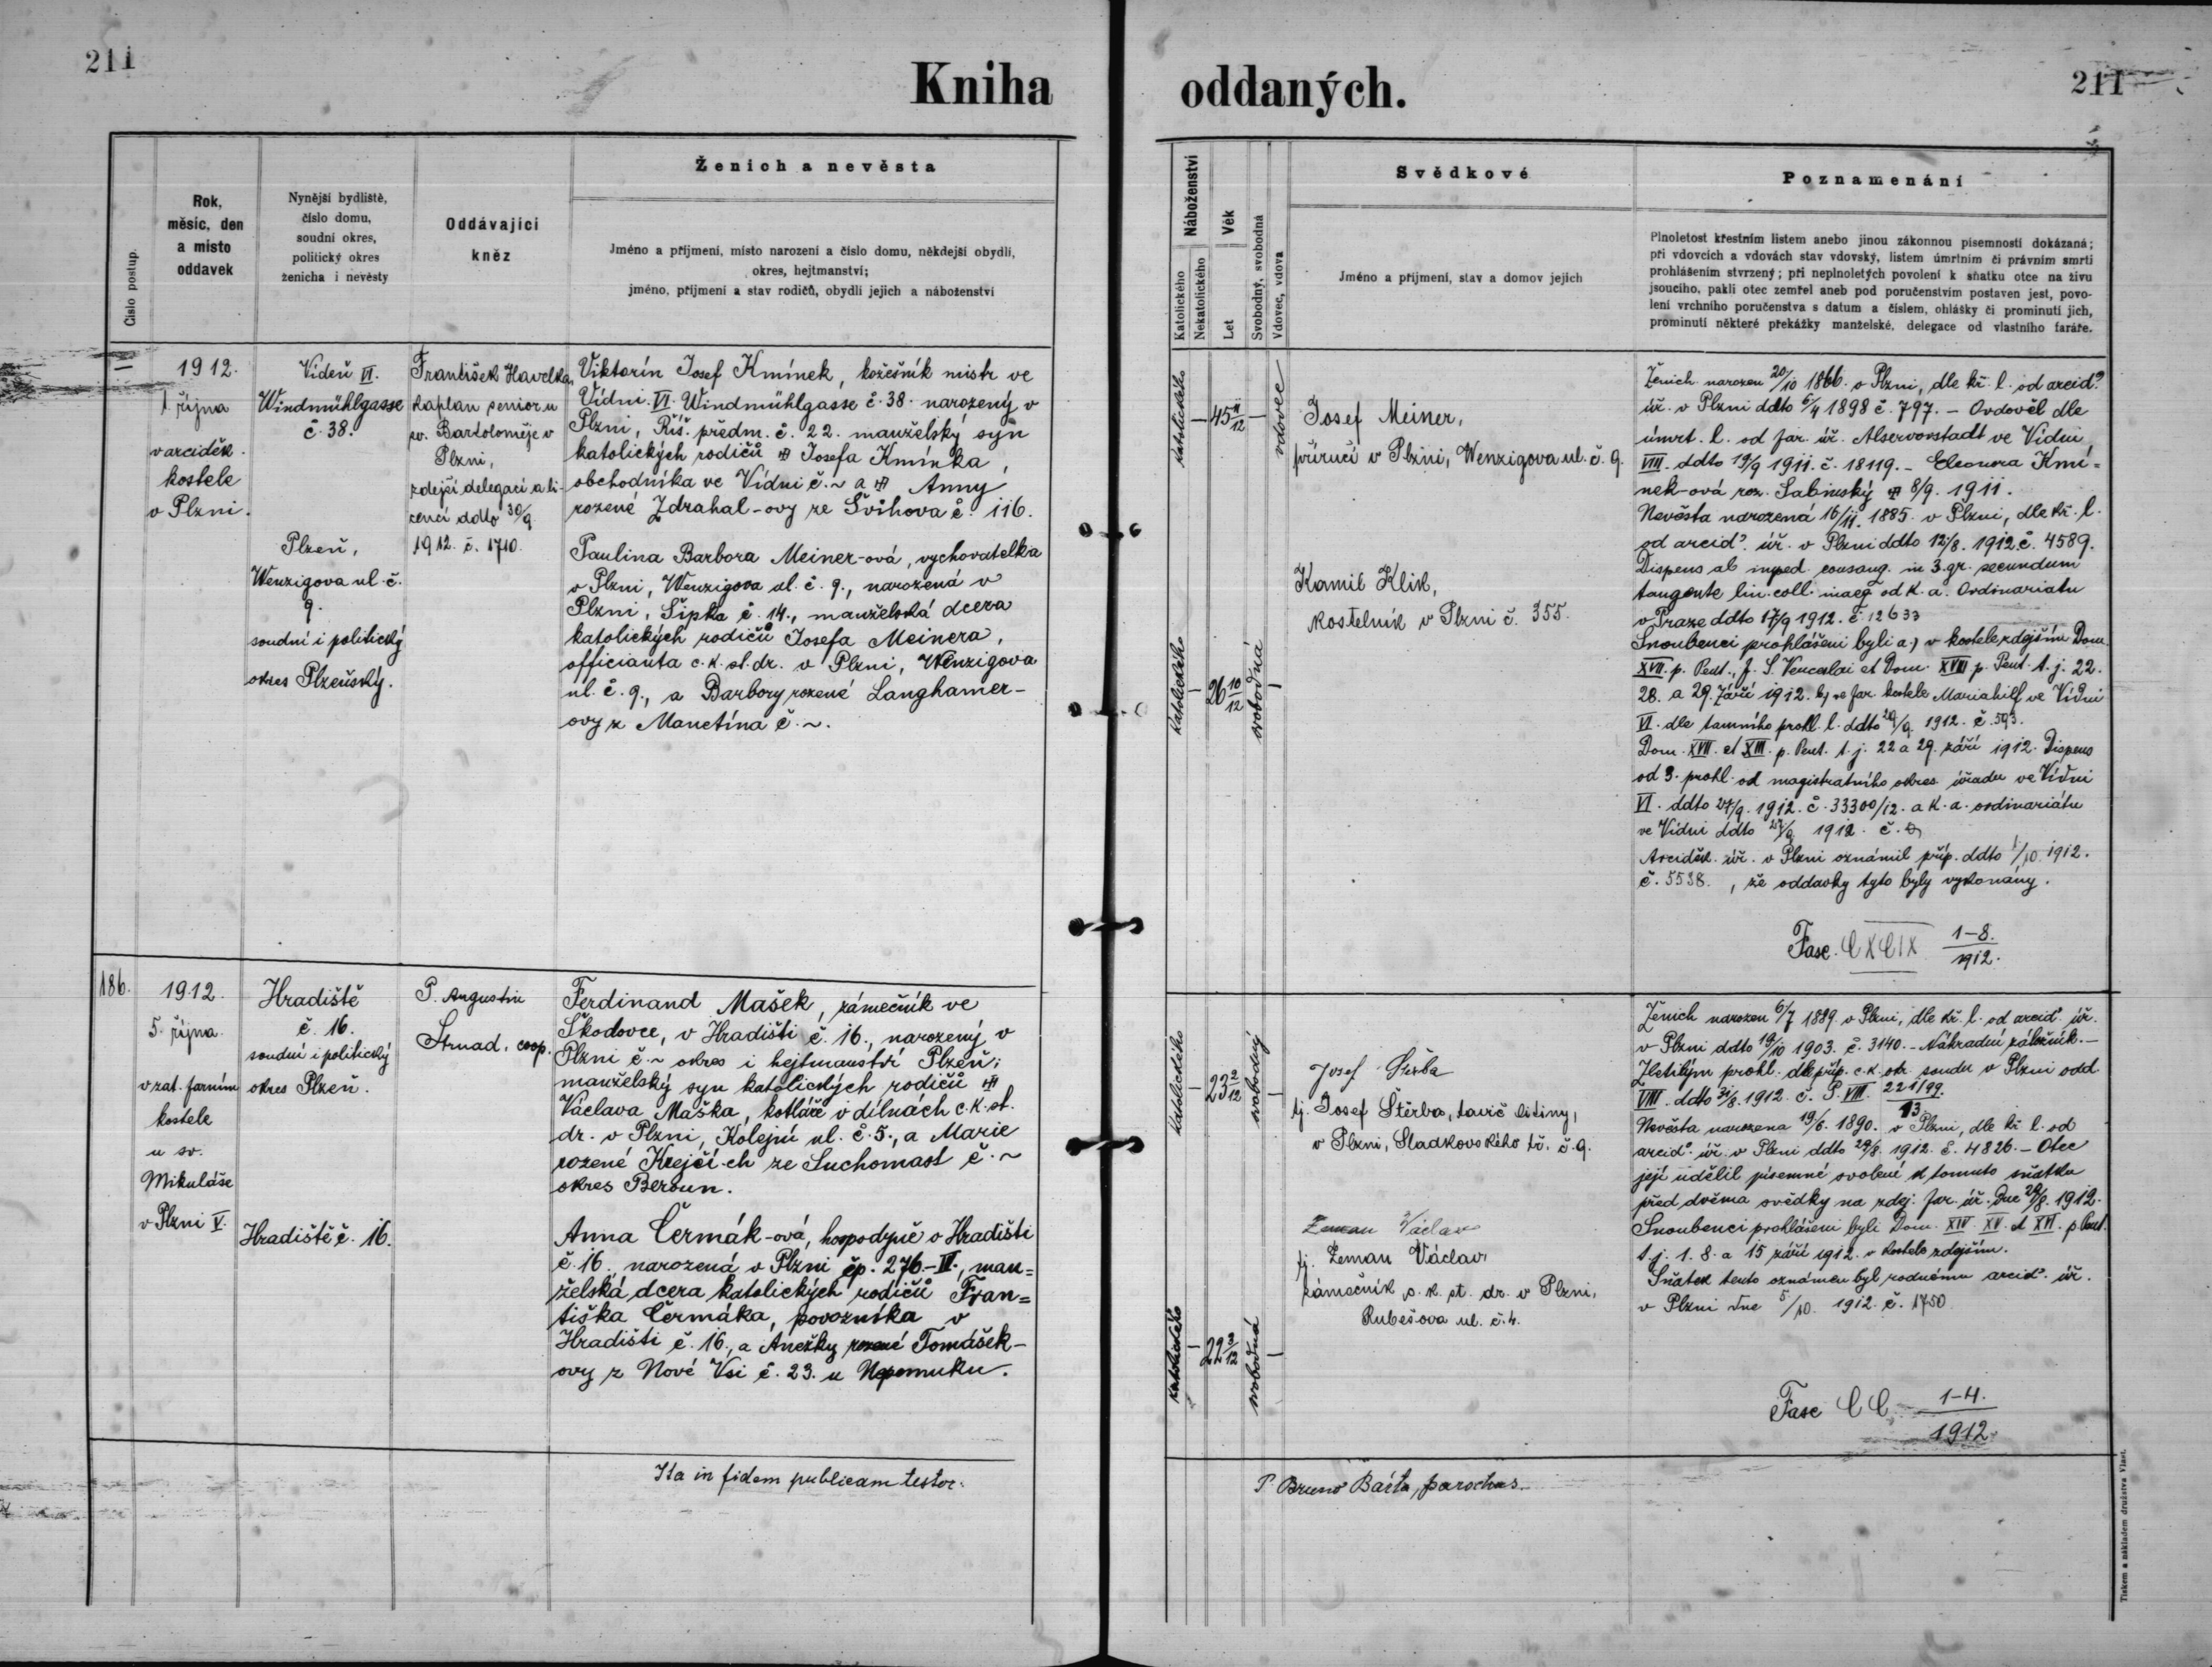 211
Kniha oddaných.
211
Číslo postup.
Rok,
měsíc, den
a místo
oddavek
Nynější bydliště,
číslo domu,
soudní okres,
politický okres
ženicha i nevěsty
Oddávající
kněz
Ženich a nevěsta
Jméno a příjmení, místo narození a číslo domu, někdejší obydlí,
okres, hejtmanství;
jméno, příjmení a stav rodičů, obydlí jejich a náboženství
Náboženství
Katolického
Nekatolického
Věk
Let
Svobodný, svobodná
Vdovec, vdova
Svědkové
Jméno a příjmení, stav a domov jejich
Poznamenání
Plnoletost křestním listem anebo jinou zákonnou písemností dokázaná;
při vdovcích a vdovách stav vdovský, listem úmrtním či právním smrti
prohlášením stvrzený; při neplnoletých povolení k sňatku otce na živu
jsoucího, pakli otec zemřel aneb pod poručenstvím postaven jest, povo-
lení vrchního poručenstva s datum a číslem, ohlášky či prominutí jich,
prominutí některé překážky manželské, delegace od vlastního faráře.
=
1912.
1. října
v arciděk.
kostele
v Plzni.
Vídeň VI.
Windmühlgasse
č. 38.
Plzeň,
Wenzigova ul. č.
9.
soudní i politický
okres Plzeňský.
František Havelka,
kaplan senior u
sv. Bartoloměje v
Plzni,
zdejší delegací a li-
cencí ddto 30/9
1912. č. 1710.
Viktorín Josef Kmínek, kožešník mistr ve
Vídni VI. Windmühlgasse č. 38. narozený v
Plzni, Říš. předm. č. 22. manželský syn
katolických rodičů Josefa Kmínka,
obchodníka ve Vídni č. ~ a Anny
rozené Zdrahal-ovy ze Švihova č. 116.
Paulina Barbora Meiner-ová, vychovatelka
v Plzni, Wenzigova ul. č. 9., narozená v
Plzni, Šipka č. 14., manželská dcera
katolických rodičů Josefa Meinera,
officianta c. k. st. dr. v Plzni, Wenzigova
ul. č. 9., a Barbory rozené Langhamer-
ovy z Manetína č. ~.
katolického
—
45 11/12
—
vdovec
katolického
—
26 10/12
svobodná
—
Josef Meiner,
příručí v Plzni, Wenzigova ul. č. 9.
Kamil Klik,
kostelník v Plzni č. 355.
Ženich narozen 20/10 1866. v Plzni, dle kř. l. od arcid.
úř. v Plzni ddto 6/4 1898 č. 797. – Ovdověl dle
úmrt. l. od far. úř. Alservorstadt ve Vídni
VIII. ddto 19/9 1911. č. 18119. – Eleonora Kmí=
nek-ová roz. 8/9. 1911.
Nevěsta narozená 16/11. 1885. v Plzni, dle kř. l.
od arcid. úř. v Plzni ddto 12/8. 1912. č. 4589.
Dispens ab imped. consang. in 3. gr. secundum
tangente lin. coll. inaeq. od k. a. Ordinariatu
v Praze ddto 17/9 1912. č. 12633
Snoubenci prohlášeni byli a) v kostele zdejším Dom.
XVII. p. Pent., f. S. Venceslai et Dom. XVIII p. Pent. t. j. 22.
28. a 29. září 1912. b) ve far. kostele Mariahilf ve Vídni
VI. dle tamního prohl. l. ddto 29/9. 1912. č. 593.
Dom. XVII. et XVIII. p. Pent. t. j. 22 a 29. září 1912. Dispens
od 3. prohl. od magistratního okres. úřadu ve Vídni
VI. ddto 27/9. 1912. č. 33300/12. a k. a. ordinariátu
ve Vídni ddto 27/9 1912. č.
Arciděk. úř. v Plzni oznámil příp. ddto 1/10. 1912.
č. 5538., že oddavky tyto byly vykonány.
Fasc. CXCIX 1–8./1912.
186.
1912.
5. října
v zat. farním
kostele
u sv.
Mikuláše
v Plzni V.
Hradiště
č. 16.
soudní i politický
okres Plzeň.
Hradiště č. 16.
P. Augustin
Strnad, coop.
Ferdinand Mašek, zámečník ve
Škodovce, v Hradišti č. 16., narozený v
Plzni č. ~ okres i hejtmanství Plzeň;
manželský syn katolických rodičů
Václava Maška, kotláře v dílnách c. k. st.
dr. v Plzni, Kolejní ul. č. 5., a Marie
rozené Krejčí-ch ze Suchomast č. ~
okres Beroun.
Anna Čermák-ová, hospodyně v Hradišti
č. 16., narozená v Plzni čp. 276.-II., man=
želská dcera katolických rodičů Fran=
tiška Čermáka, povozníka v
Hradišti č. 16., a Anežky rozené Tomášek-
ovy z Nové Vsi č. 23. u Nepomuku.
katolického
—
23 2/12
svobodný
—
katolického
—
22 3/12
svobodná
—
Josef Štěrba
tj. Josef Štěrba, tavič litiny,
v Plzni, Sladkovského tř. č. 9.
Zeman Václav
tj. Zeman Václav
zámečník c. k. st. dr. v Plzni,
Rubešova ul. č. 4.
Ženich narozen 6/7 1889 v Plzni, dle kř. l. od arcid. úř.
v Plzni ddto 19/10 1903. č. 3140. – Náhradní záložník. –
Zletilým prohl. dle příp. c. k. okr. soudu v Plzni odd.
VIII. ddto 31/8. 1912. č. P. VIII. 221/99./13.
Nevěsta narozena 19/6. 1890. v Plzni, dle kř. l. od
arcid. úř. v Plzni ddto 29/8. 1912. č. 4826. – Otec
její udělil písemné svolení k tomuto sňatku
před dvěma svědky na zdej. far. úř. dne 29/8. 1912.
Snoubenci prohlášeni byli Dom. XIV. XV. et XVI. p. Pent.
t. j. 1. 8. a 15 září 1912. v kostele zdejším.
Sňatek tento oznámen byl rodnému arcid. úř.
v Plzni dne 5/10. 1912. č. 1750.
Fasc CC 1–4./1912.
Ita in fidem publicam testor.
P. Bruno Bárta, parochus.
Tiskem a nákladem družstva Vlast.